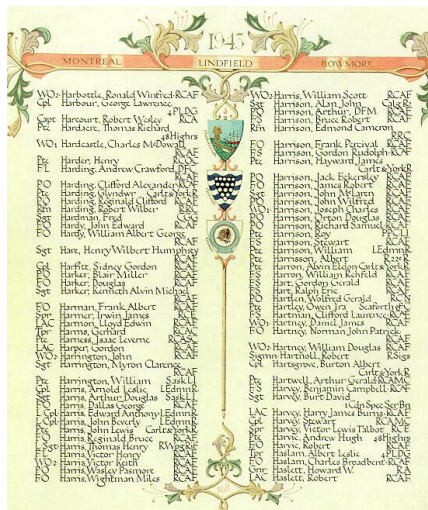 1943
MONTREAL LINDFIELD BOWMORE
WO2 Harbottle, Ronald Winfred RCAF
Cpl Harbour, George Lawrence
4 PLDG
Capt Harcourt, Robert Wesley RCA
Pte Hardacre, Thomas Richard
48Highrs
WO1 Hardcastle, Charles McDowall
RCAF
Pte Harder, Henry RCOC
FL Harding, Andrew Crawford, DFC
RCAF
PO Harding, Clifford Alexander RCAF
Pte Harding, Gwndwr Carlt&YorkR
PO Harding, Reginald Clifford RCAF
Rfn Harding, Robert Wilber RRC
Sgt Hardman, Fred CGG
FO Hardy, John Edward RCAF
FO Hardy, William Albert George
RCAF
Sgt Hare, Henry Wilbert Humphrey
RCAF
Cpl Harfitt, Sidney Gordon RCAF
PO Harker, Blair Miller RCAF
FO Harker, Douglas RCAF
Sgt Harker, Kenneth Alvin Michael
RCAF
FO Harman, Frank Albert RCAF
Spr Harmer, Irwin James RCE
LAC Harmon, Lloyd Edwin RCAF
Tpr Harms, Gerhard CAC
Pte Harness, Isaac Leverne RCASC
LAC Harper, Gordon RCAF
WO2 Harrington, John RCAF
Sgt Harrington, Myron Clarence
RCAF
Pte Harrington, William SaskLI
Cpl Harris, Arnold Leslie LEdmnR
Sgt Harris, Arthur Douglas SaskLI
FO Harris, Dallas George RCAF
L Cpl Harris, Edward Anthony LEdmnR
L Cpl Harris, John Beverly LEdmnR
Pte Harris, John Lewis Carlt&YorkR
FO Harris, Reginald Bruce RCAF
L Sgt Harris, Thomas Henry RWpgRif
FL Harris, Victor Henry RCAF
WO2 Harris, Victor Keith RCAF
PO Harris, Wasley Pasmore RCAF
FO Harris, Wightman Miles RCAF
WO2 Harris, William Scott RCAF
Sgt Harrison, Alan John CalgRr
PO Harrison, Arthur, DFM RCAF
FO Harrison, Bruce Robert RCAF
Rfn Harrison, Edmond Cameron
RRC
FO Harrison, Frank Percival RCAF
FO Harrison, Gordon Rudolph RCAF
Pte Harrison, Hayward James
Carlt&YorkR
PO Harrison, Jack Eckersley RCAF
FO Harrison, James Robert RCAF
Sgt Harrison, John McLaren RCAF
PO Harrison, John Wilfred RCAF
WO1 Harrison, Joseph Charles RCAF
PO Harrison, Orton Douglas RCAF
PO Harrison, Richard Samuel RCAF
Pte Harrison, Roy PPCLI
FS Harrison, Stewart RCAF
Pte Harrison, William LEdmnR
Pte Harrisson, Albert R22eR
Pte Harron, Alvin Eldon Carlt&YorkR
FS Harron, William Rehfeld RCAF
FS Hart, Gordon Gerald RCAF
PO Hart, Ralph Eric RCAF
PO Hartlen, Wolfred Gerald RCN
Pte Hartley, Owen Jra SeaforthofC
FS Hartman, Clifford Laurence RCAF
WO1 Hartney, Daniel James RCAF
FO Hartney, Norman John Patrick
RCAF
WO2 Hartney, William Douglas RCAF
Sigmn Hartnoll, Robert RSigs
Cpl Hartsgrove, Burton Albert
Carlt&YorkR
Pte Hartwell, Arthur Gerald RCAMC
FS Harvey, Benjamin Campbell RCAF
Sgt Harvey, Burt David
1 Cdn Spec Ser Bn
LAC Harvey, Harry James Burns RCAF
Cpl Harvey, Stewart RCAMC
Spr Harvey, Victor Lewis Talbot RCE
Pte Harvey, Andrew Hugh 48Highrs
FO Harvie, Robert RCAF
Tpr Haslam, Albert Leslie 4 PLDG
FO Haslam, Charles Broadbent RCAF
Gnr Haslett, Howard W. RA
LAC Haslett, Robert RCAF